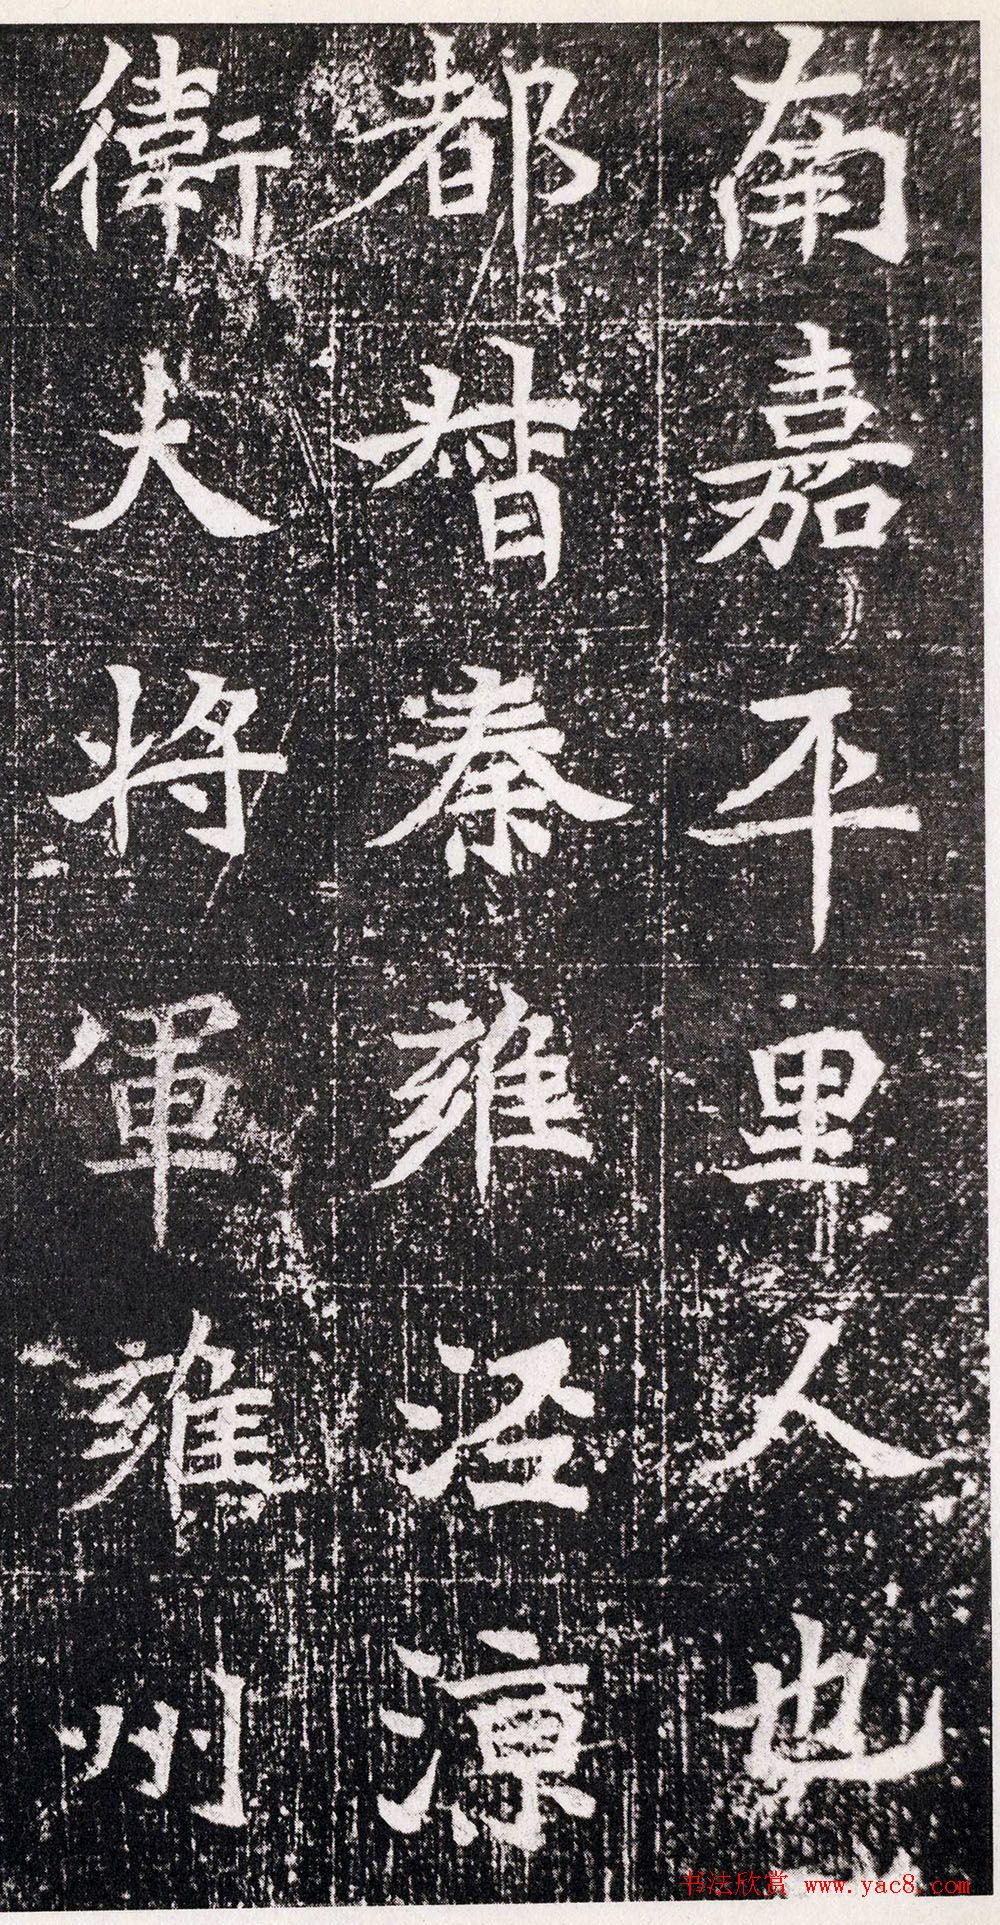 南嘉平里人也
都督秦雍泾涼
衛大将軍雍州
书法欣赏 www.yac8.com